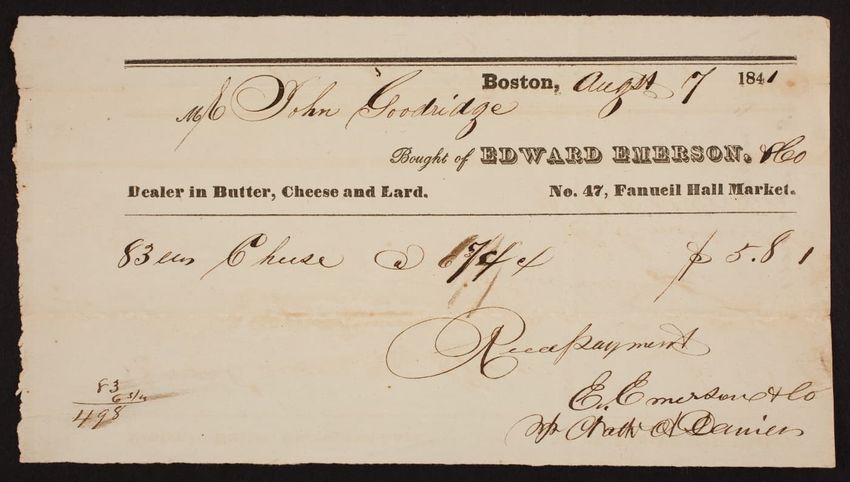 Boston, Augst 7 1841
Mr John Goodridge
Bought of EDWARD EMERSON. & Co
Dealer in Butter, Cheese and Lard. No. 47, Fanueil Hall Market.
83 Cheese @ 7 ¢ $ 5.81
Recd payment
83
6 3/4
498
E. Emerson & Co